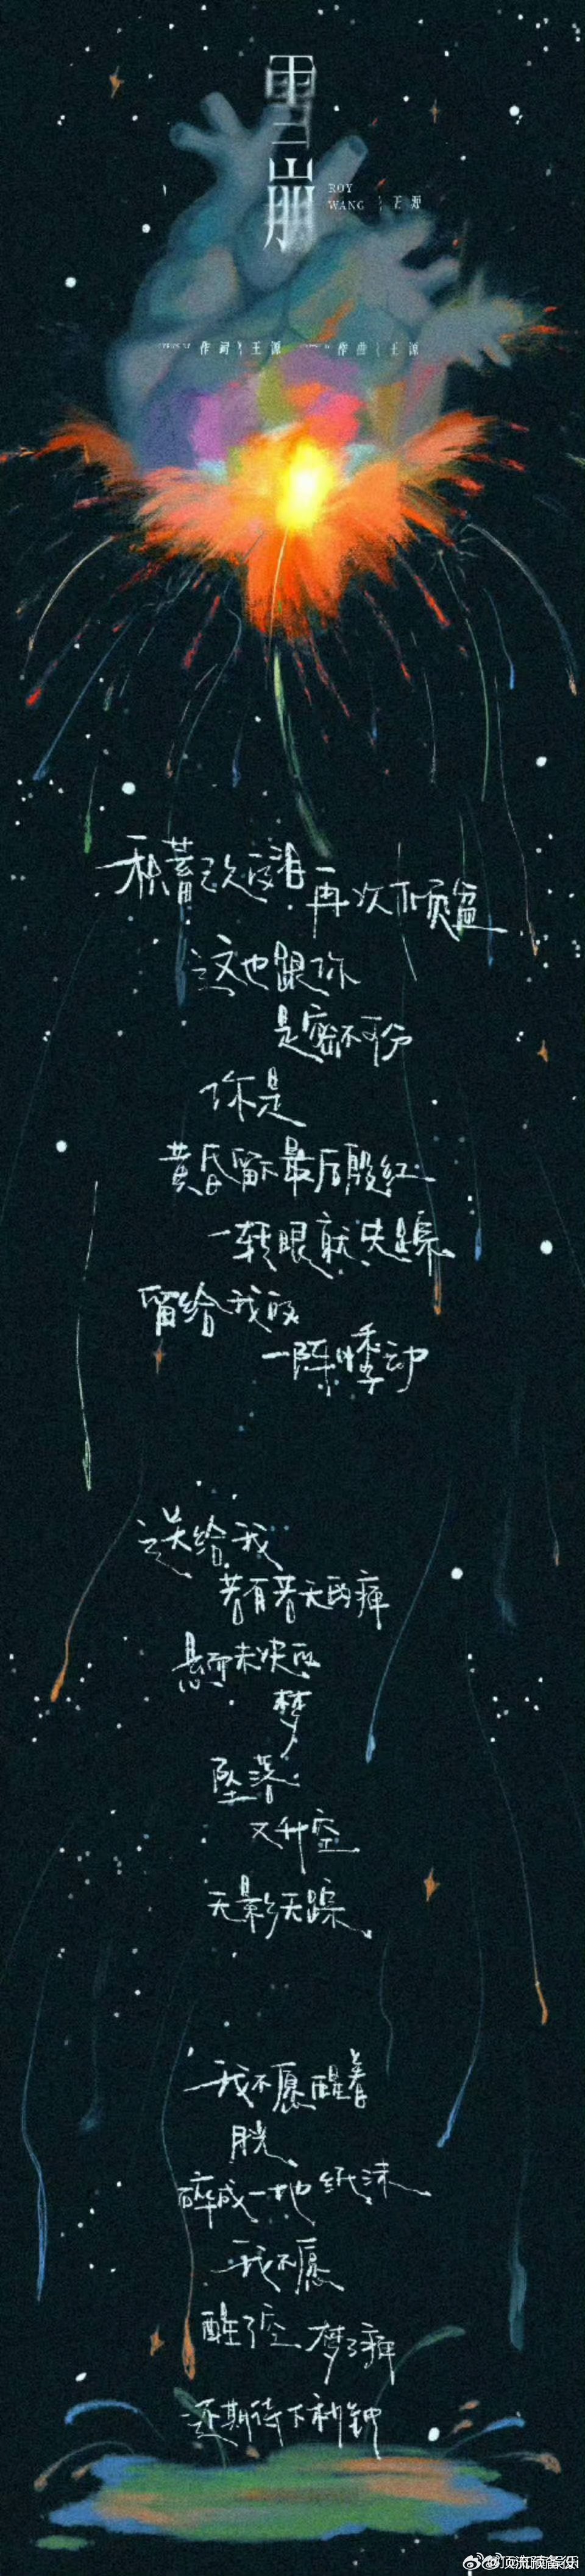 雪崩
ROY
WANG 王源
作词 王源 作曲 王源
积蓄已久的泪 再次倾盆
这也跟你
是密不可分
你是
黄昏留下最后殷红
一转眼就失踪
留给我的
一阵悸动
送给我
若有若无的痛
悬而未决的
梦
坠落
又升空
无影无踪
我不愿醒着
月光
碎成一地 纸沫
我不愿
醒了空 梦了痛
还期待下秒钟